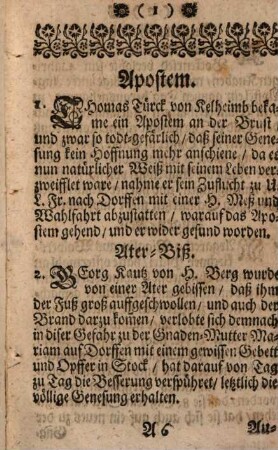 ( 1 )
Apostem.
1. THomas Türck von Kelheimb beka-
me ein Apostem an der Brust /
und zwar so todt-gefärlich / daß seiner Gene-
sung kein Hoffnung mehr anschiene / da er
nun natürlicher Weiß mit seinem Leben ver-
zweifflet ware / nahme er sein Zuflucht zu U.
L. Fr. nach Dorffen mit einer H. Meß und
Wahlfahrt abzustatten / warauf das Apo-
stem gehend / und er wider gesund worden.
Ater-Biß.
2. GEorg Kautz von H. Berg wurde
von einer Ater gebissen / daß ihm
der Fuß groß auffgeschwollen / und auch der
Brand darzu kom̃en / verlobte sich demnach
in diser Gefahr zu der Gnaden-Mutter Ma-
riam auf Dorffen mit einem gewissen Gebett
und Opffer in Stock / hat darauf von Tag
zu Tag die Besserung verspühret / letztlich die
völlige Genesung erhalten.
A 6 Au-